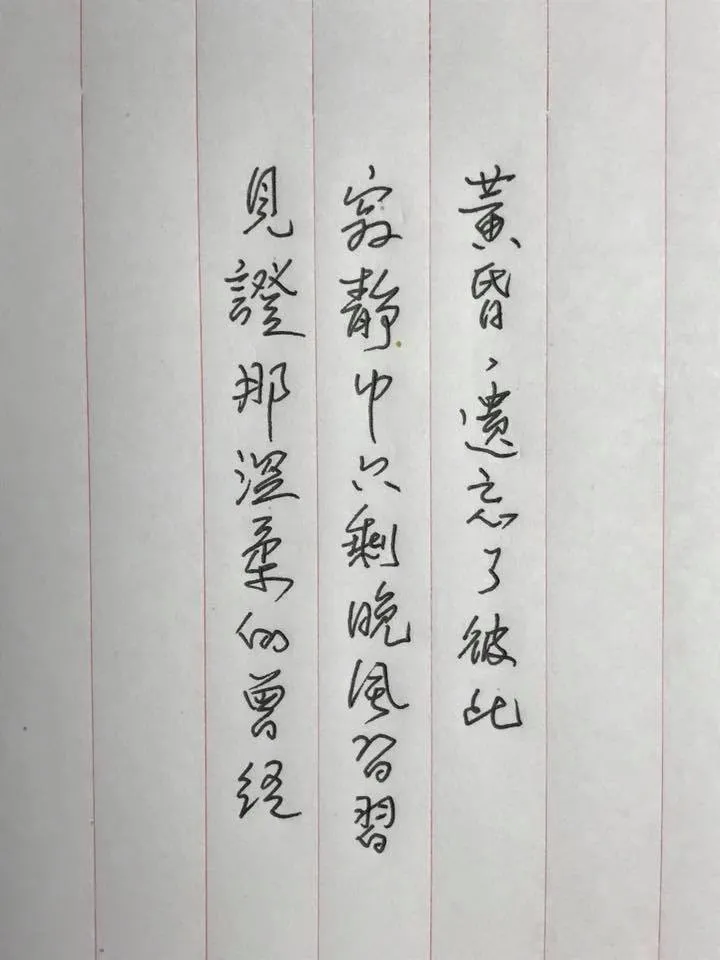 黃昏、遺忘了彼此
寂靜中只剩晚風習習
見證那溫柔的曾經